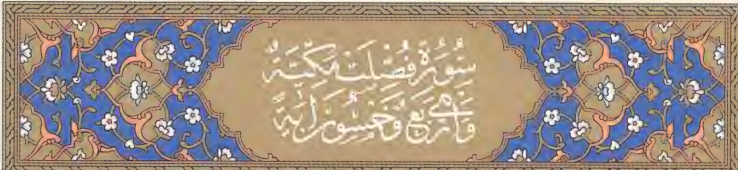 سُورَةُ فُصِّلَتْ مَكِّيَّةٌ
وَهِيَ أَرْبَعٌ وَخَمْسُونَ آيَةً